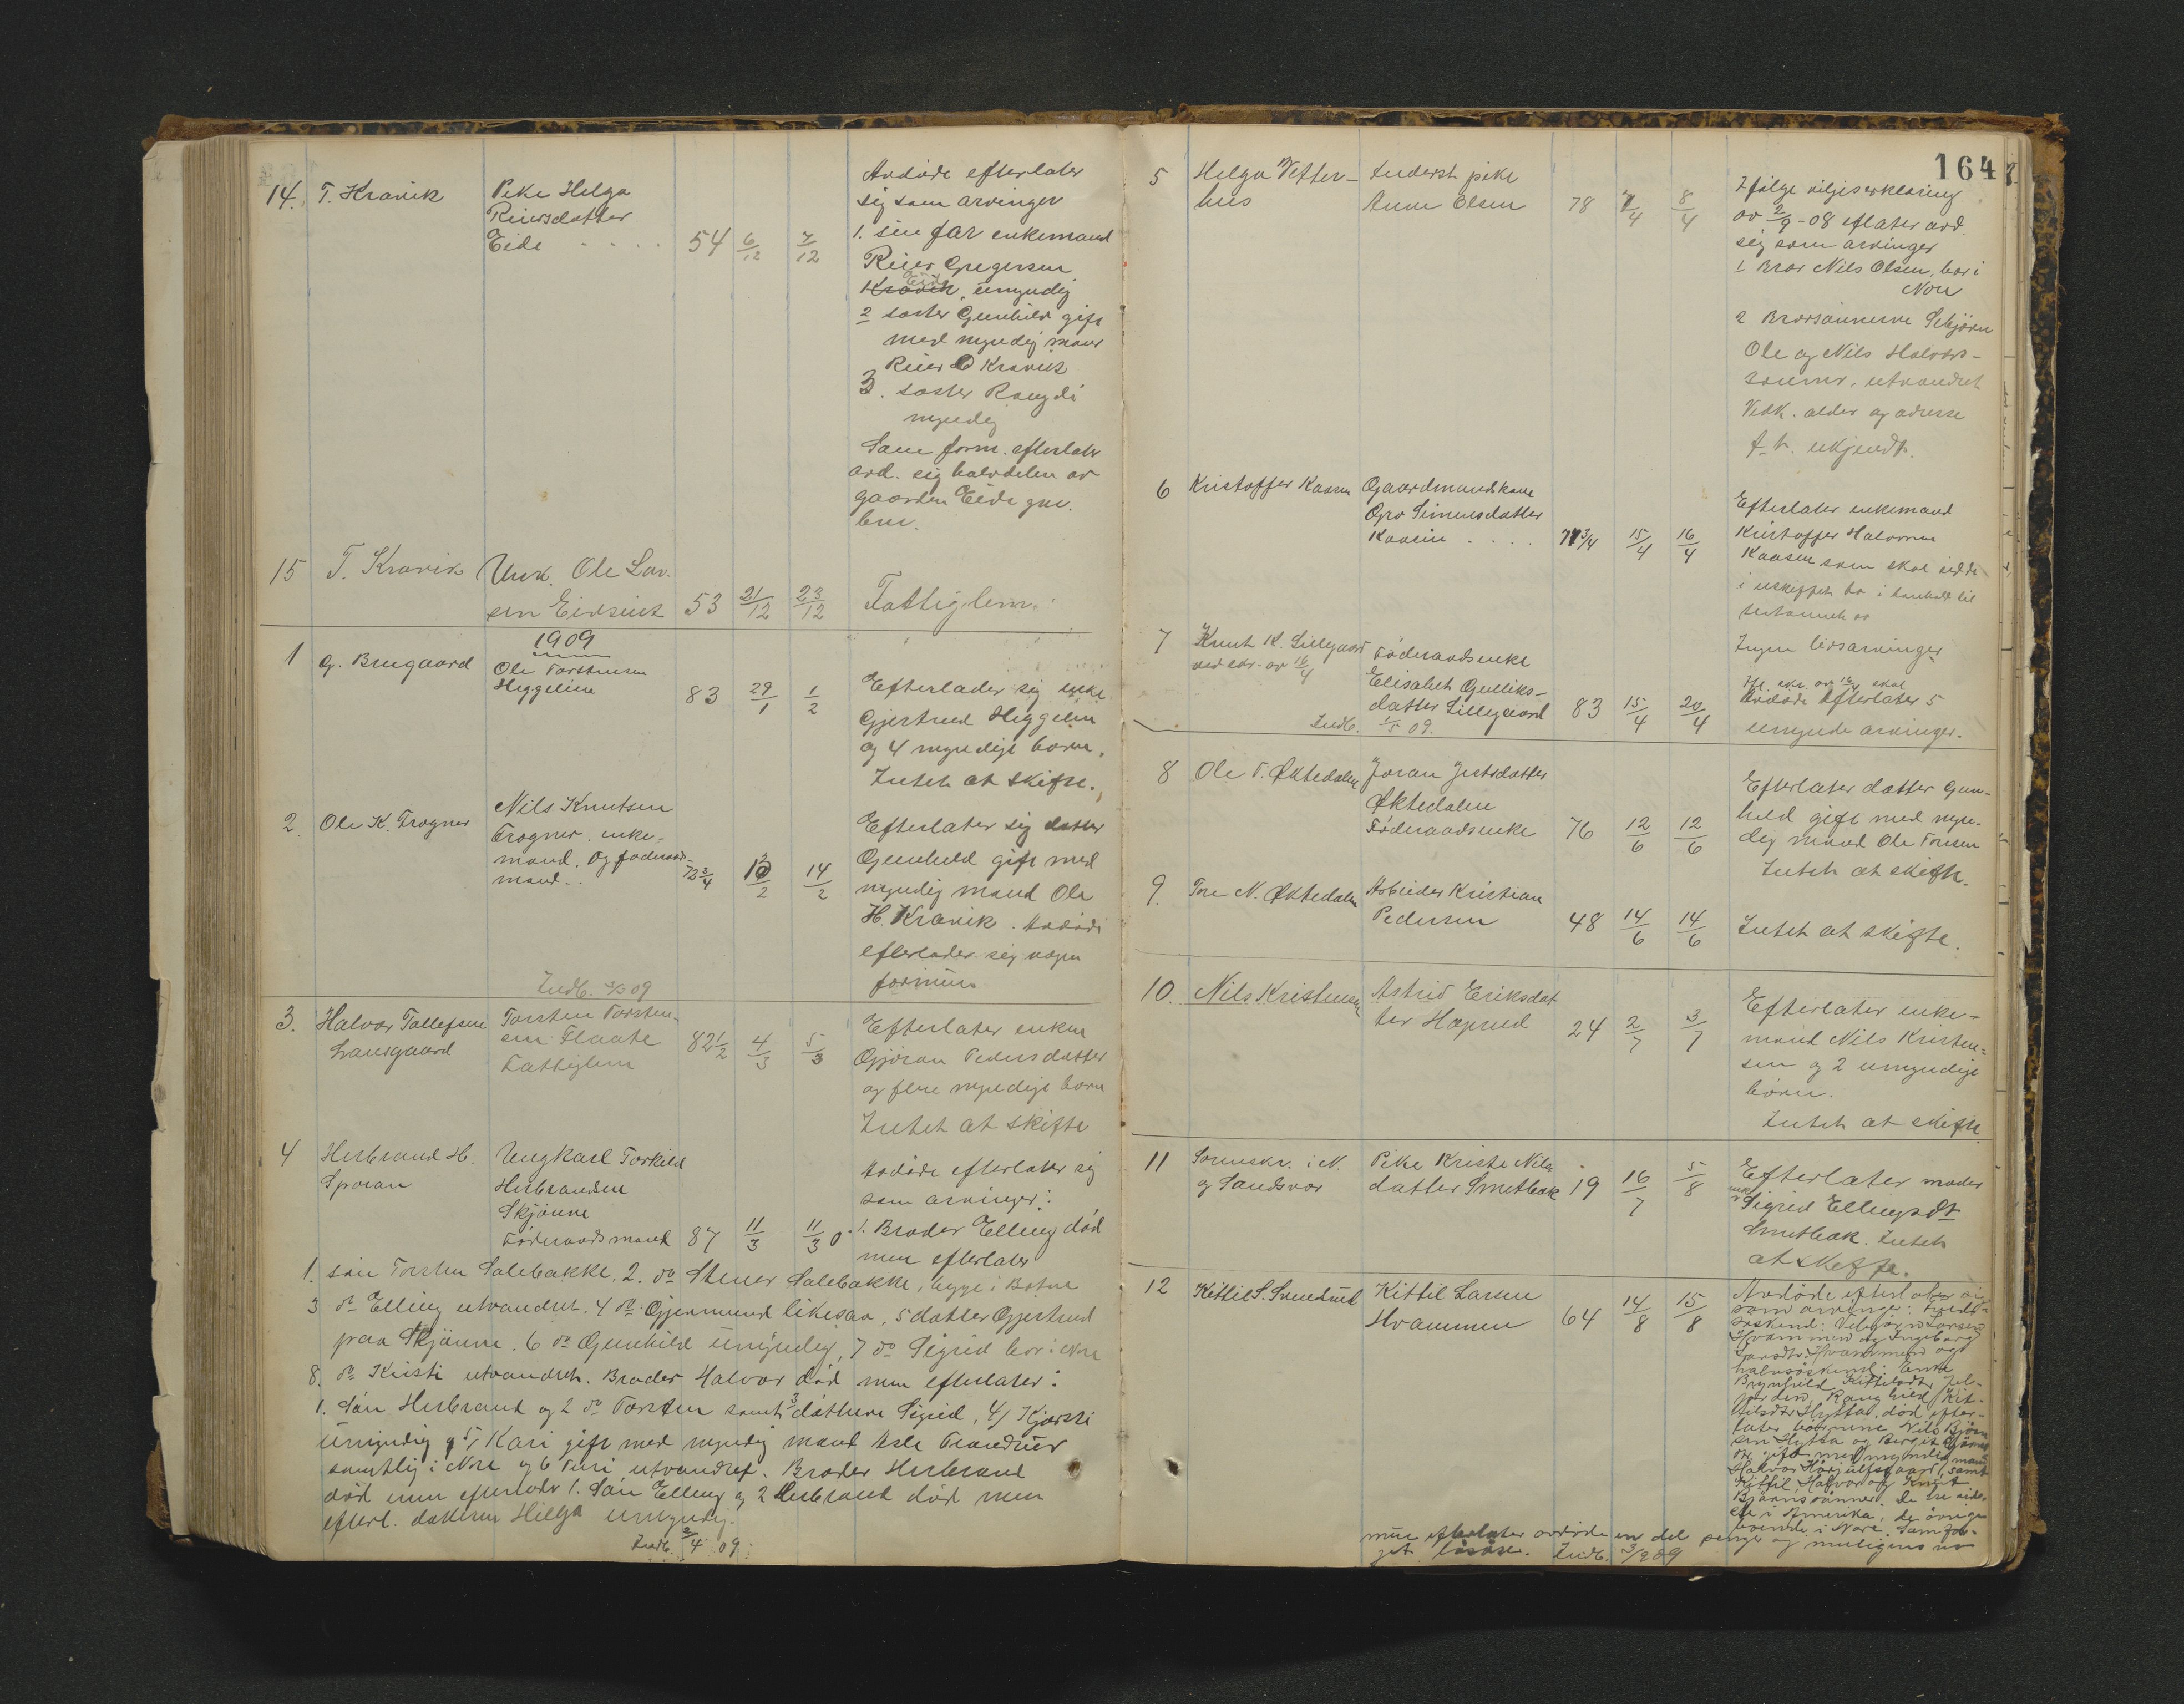 14. T. Kravik
Pike Helga
Reiersdatter
Eide . . . . 54 6/12 7/12
Avdøde efterlater
sig som arvinger
1. sin far enkemand
Reier Gregersen
Kravik Eide, umyndig
2 søster Gunhild gift
med myndig mand
Reier O Kravik
3. søster Rangdi
myndig
Som form. efterlater
avd. sig halvdelen av
gaarden Eide gnr.
bnr.
15 T. Kravik
Unk. Ole Lar-
sen Eidsint 53 21/12 23/12 Fattiglem.
1909
1 G. Brugaard
Ole Torstensen
Heggelien 83 29/1 1/2
Efterlader sig enke
Gjertrud Heggelien
og 4 myndige børn.
Intet at skifte.
2. Ole K. Frogner
Nils Knutsen
Frogner. enke-
mand. og føderaads-
mand.. 72 3/4 12/2 14/2
Efterlater sig datter
Gunhild gift med
myndig mand Ole
H. Kravik. Avdøde
efterlader sig nogen
formue.
Indb. 3/3 09
3. Halvor Tollefsen
Lansgaard
Torsten Torsten-
sen Flaata
Fattiglem 82 1/2 4/3 5/3
Efterlater enken
Gjøran Pedersdatter
og flere myndige børn
Intet at skifte
4 Herbrand H.
Sporan
Ungkarl Torkild
Herbrandsen
Skjønne
Føderaadsmand 87 11/3 11/3 0
Avdøde efterlater sig
som arvinger:
1. Broder Elling død
men efterlater
1. søn Torsten Salebakke, 2. do Stener Salebakke, begge i Botne
3 do Elling utvandret. 4 do Gjermund likesaa, 5 datter Gjertrud
paa Skjønne. 6 do Gunhild umyndig, 7 do Sigrid bor i Nore
8. do Kristi utvandret. Broder Halvor død men efterlater:
1. søn Herbrand og 2 do Torsten samt 3 døttrene Sigrid, 4/ Kjersti
umyndig og 5/ Kari gift med myndig mand Asle Trondrud
samtlig i Nore og 6 Turi utvandret. Broder Herbrand
død men efterlader 1. søn Elling og 2 Herbrand død men
efterl. datteren Helga umyndig.
Indb. 2/4 09.
164
5 Helga Vetter-
hus
Inderst pike
Anne Olsen 78 7/4 8/4
Ifølge viljeserklæring
av 2/9 - 08 eflater avd.
sig som arvinger
1 Bror Nils Olsen, bor i
Nore
2 Brorsønnerne Sebjørn
Ole og Nils Halvors-
sønner, utvandret
Vedk. alder og adresse
f. t. ukjendt.
6 Kristoffer Kaasen
Gaardmandskone
Gro Simensdatter
Kaasen . . . . 71 3/4 15/4 16/4
Efterlater enkemand
Kristoffer Halvorsen
Kaasen som skal sidde
i uskiftet bo i henhold til
testamente av
Ingen livsarvinger
7 Knut K. Lillegaard
ved skr. av 16/4
Føderaadsenke
Elisabet Gulliks-
datter Lillegaard 83 15/4 20/4
Hf. skr. av 16/4 skal
avdøde efterlater 5
umynde arvinger.
Indb. 1/5 09.
8 Ole T. Øktedalen
Joran Jertsdatter
Øktedalen
Føderaadsenke 76 12/6 12/6
Efterlater datter Gun-
hild gift med myn-
dig mand Ole Toresen
Intet at skifte.
9. Tore N. Øktedalen
Arbeider Kristian
Pedersen 48 14/6 14/6 Intet at skifte.
10. Nils Kristensen
Astrid Eriksdat
ter Haprud 24 2/7 3/7
Efterlater enke-
mand Nils Kristen-
sen og 2 umyndige
børn.
Intet at skifte
11 Sorenskr. i N.
og Sandsvær
Pike Kristi Nils
datter Smetbak 19 16/7 5/8
Efterlater moder
enke Sigrid Ellingsdt
Smetbak. Intet
at skifte.
12 Kittil S. Svendrud
Kittil Larsen
Hvammen 64 14/8 15/8
Avdøde efterlater sig
som arvinger: Hel-
søskend: Vebjørn Larsen
Hvammen og Ingeborg
Larsdtr. Hvammen og
halvsøskend: Enke
Brynhild Kittilsdtr.
Ranghild Kit-
tilsdtr Hytta, død efter-
later børnene Nils Bjørn
sen Hytta og Birgit Bjørns
dtr gift med myndig mand
Halvor samt
Kittil, Halvor og Knut
Bjørnssønner. De tre sids-
te i Amerika, de øvrige
boende i Nore. Som for-
mue efterlater avdøde en del penger og muligens no
get løsøre. Indb. 3/9 09